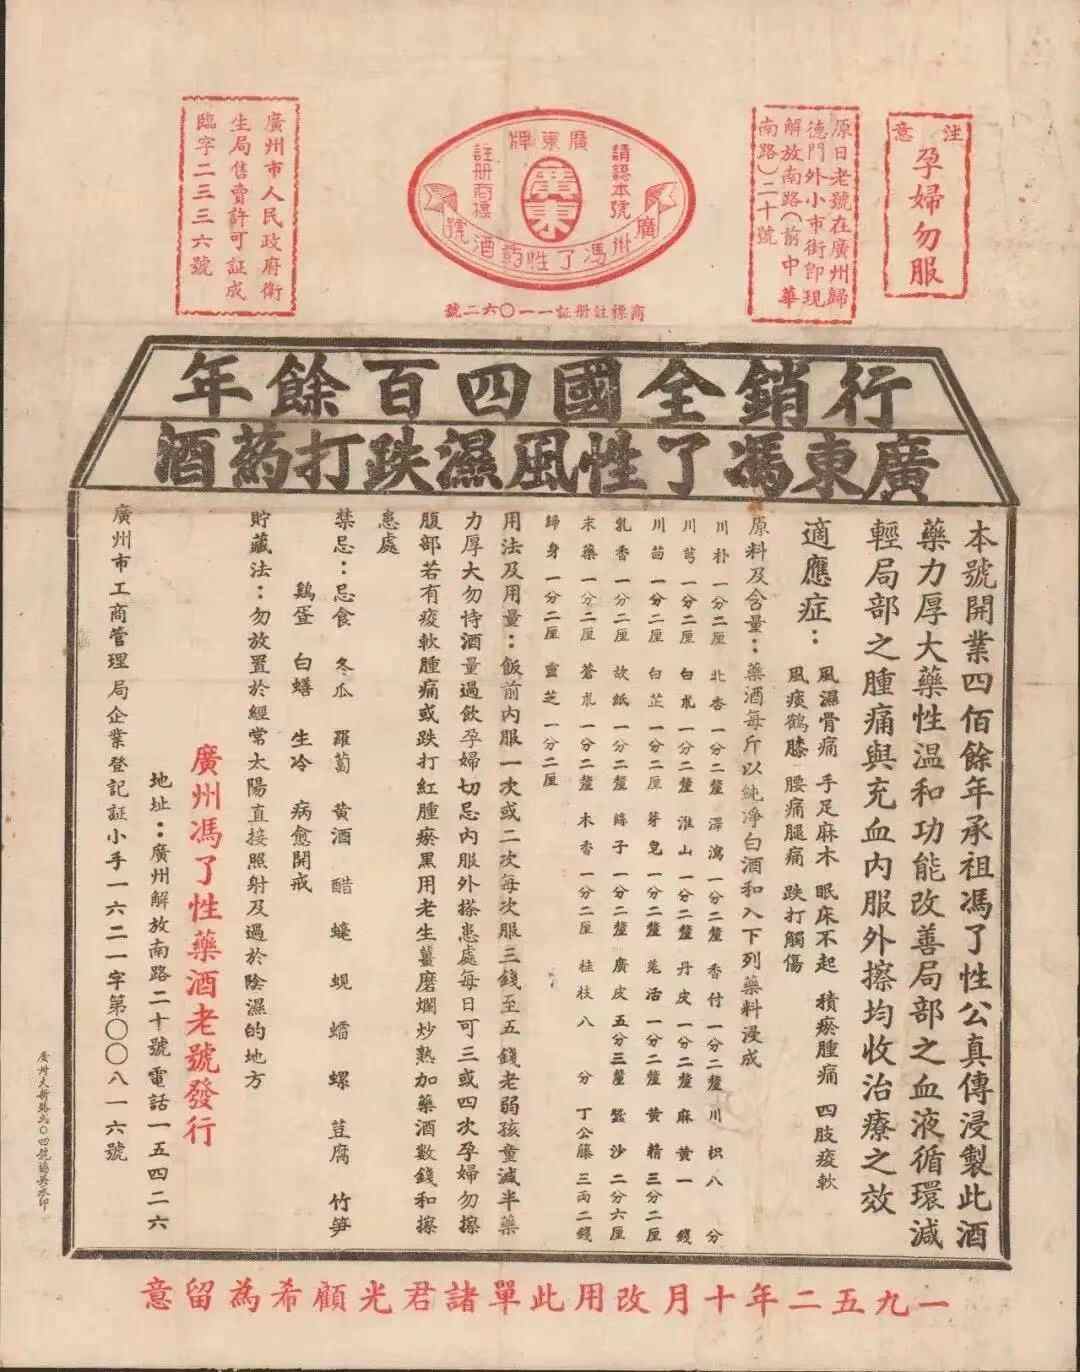 注意
孕婦勿服
原日老號在廣州歸
德門外小市街即現
解放南路(前中華
南路)二十號
廣東牌
請認本號
註册商標
廣東
廣州馮了性药酒號
商標註册証一一〇六二號
廣州市人民政府衛
生局售賣許可証成
臨字二三三六號
行銷全國四百餘年
廣東馮了性風濕跌打药酒
本號開業四佰餘年承祖馮了性公真傳浸製此酒
藥力厚大藥性温和功能改善局部之血液循環減
輕局部之腫痛與充血内服外擦均收治療之效
適應症：
風濕骨痛 手足麻木 眠床不起 積瘀腫痛 四肢痠軟
風痰鶴膝 腰痛腿痛 跌打觸傷
原料及含量：藥酒每斤以純淨白酒和入下列藥料浸成
川朴一分二厘 北杏一分二釐 澤瀉一分二釐 香付一分二釐 川枳八分
川芎一分二厘 白朮一分二釐 淮山一分二釐 丹皮一分二釐 麻黄一錢
川苗一分二厘 白芷一分二厘 芽皂一分二釐 羗活一分二釐 黄精三分二厘
乳香一分二厘 故紙一分二釐 絲子一分二釐 廣皮五分三釐 蠶沙二分六厘
末藥一分二厘 蒼朮一分二釐 木香一分二厘 桂枝八分 丁公藤三兩二錢
歸身一分二厘 靈芝一分二厘
用法及用量：飯前内服一次或二次每次服三錢至五錢老弱孩童減半藥
力厚大勿恃酒量過飲孕婦切忌内服外搽患處每日可三或四次孕婦勿擦
腹部若有痠軟腫痛或跌打紅腫瘀黑用老生薑磨爛炒熟加藥酒數錢和擦
患處
禁忌：忌食 冬瓜 羅蔔 黄酒 醋 蟛 蜆 蠕 螺 荳腐 竹笋
鷄蛋 白鱔 生冷 病愈開戒
貯藏法：勿放置於經常太陽直接照射及過於陰濕的地方
廣州馮了性藥酒老號發行
地址：廣州解放南路二十號電話一五四二六
廣州市工商管理局企業登記証小手一六二一字第〇〇八一六號
廣州大新路六〇四號 承印
一九五二年十月改用此單諸君光顧希為留意